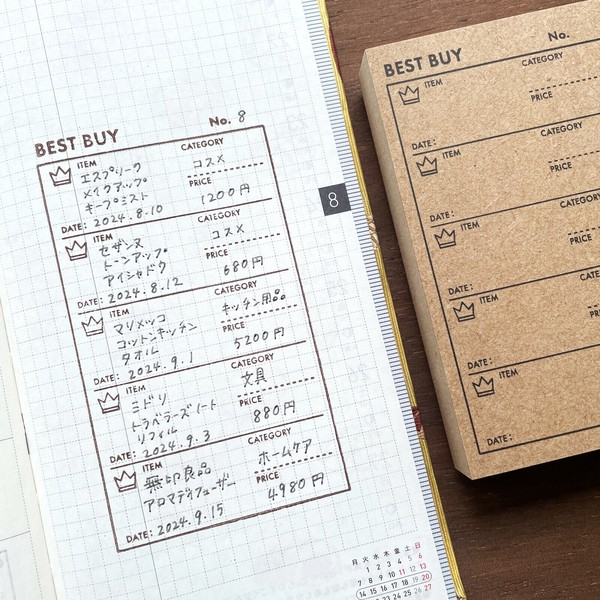 BEST BUY
No. 8
ITEM
エスプリーク
メイクアップ
キープミスト
CATEGORY
コスメ
PRICE
1200円
DATE: 2024.8.10
ITEM
セザンヌ
トーンアップ
アイシャドウ
CATEGORY
コスメ
PRICE
680円
DATE: 2024.8.12
ITEM
マリメッコ
コットンキッチン
タオル
CATEGORY
キッチン用品
PRICE
5200円
DATE: 2024.9.1
ITEM
ミドリ
トラベラーズノート
リフィル
CATEGORY
文具
PRICE
880円
DATE: 2024.9.3
ITEM
無印良品
アロマディフューザー
CATEGORY
ホームケア
PRICE
4980円
DATE: 2024.9.15
8
月 火 水 木 金 土 日
1 2 3 4 5 6
7 8 9 10 11 12 13
14 15 16 17 18 19 20
26 27
BEST BUY
No.
ITEM
CATEGORY
PRICE
DATE:
ITEM
CATEGORY
PRICE
DATE:
ITEM
CATEGORY
PRICE
DATE:
ITEM
CATEGORY
PRICE
DATE:
ITEM
DATE: